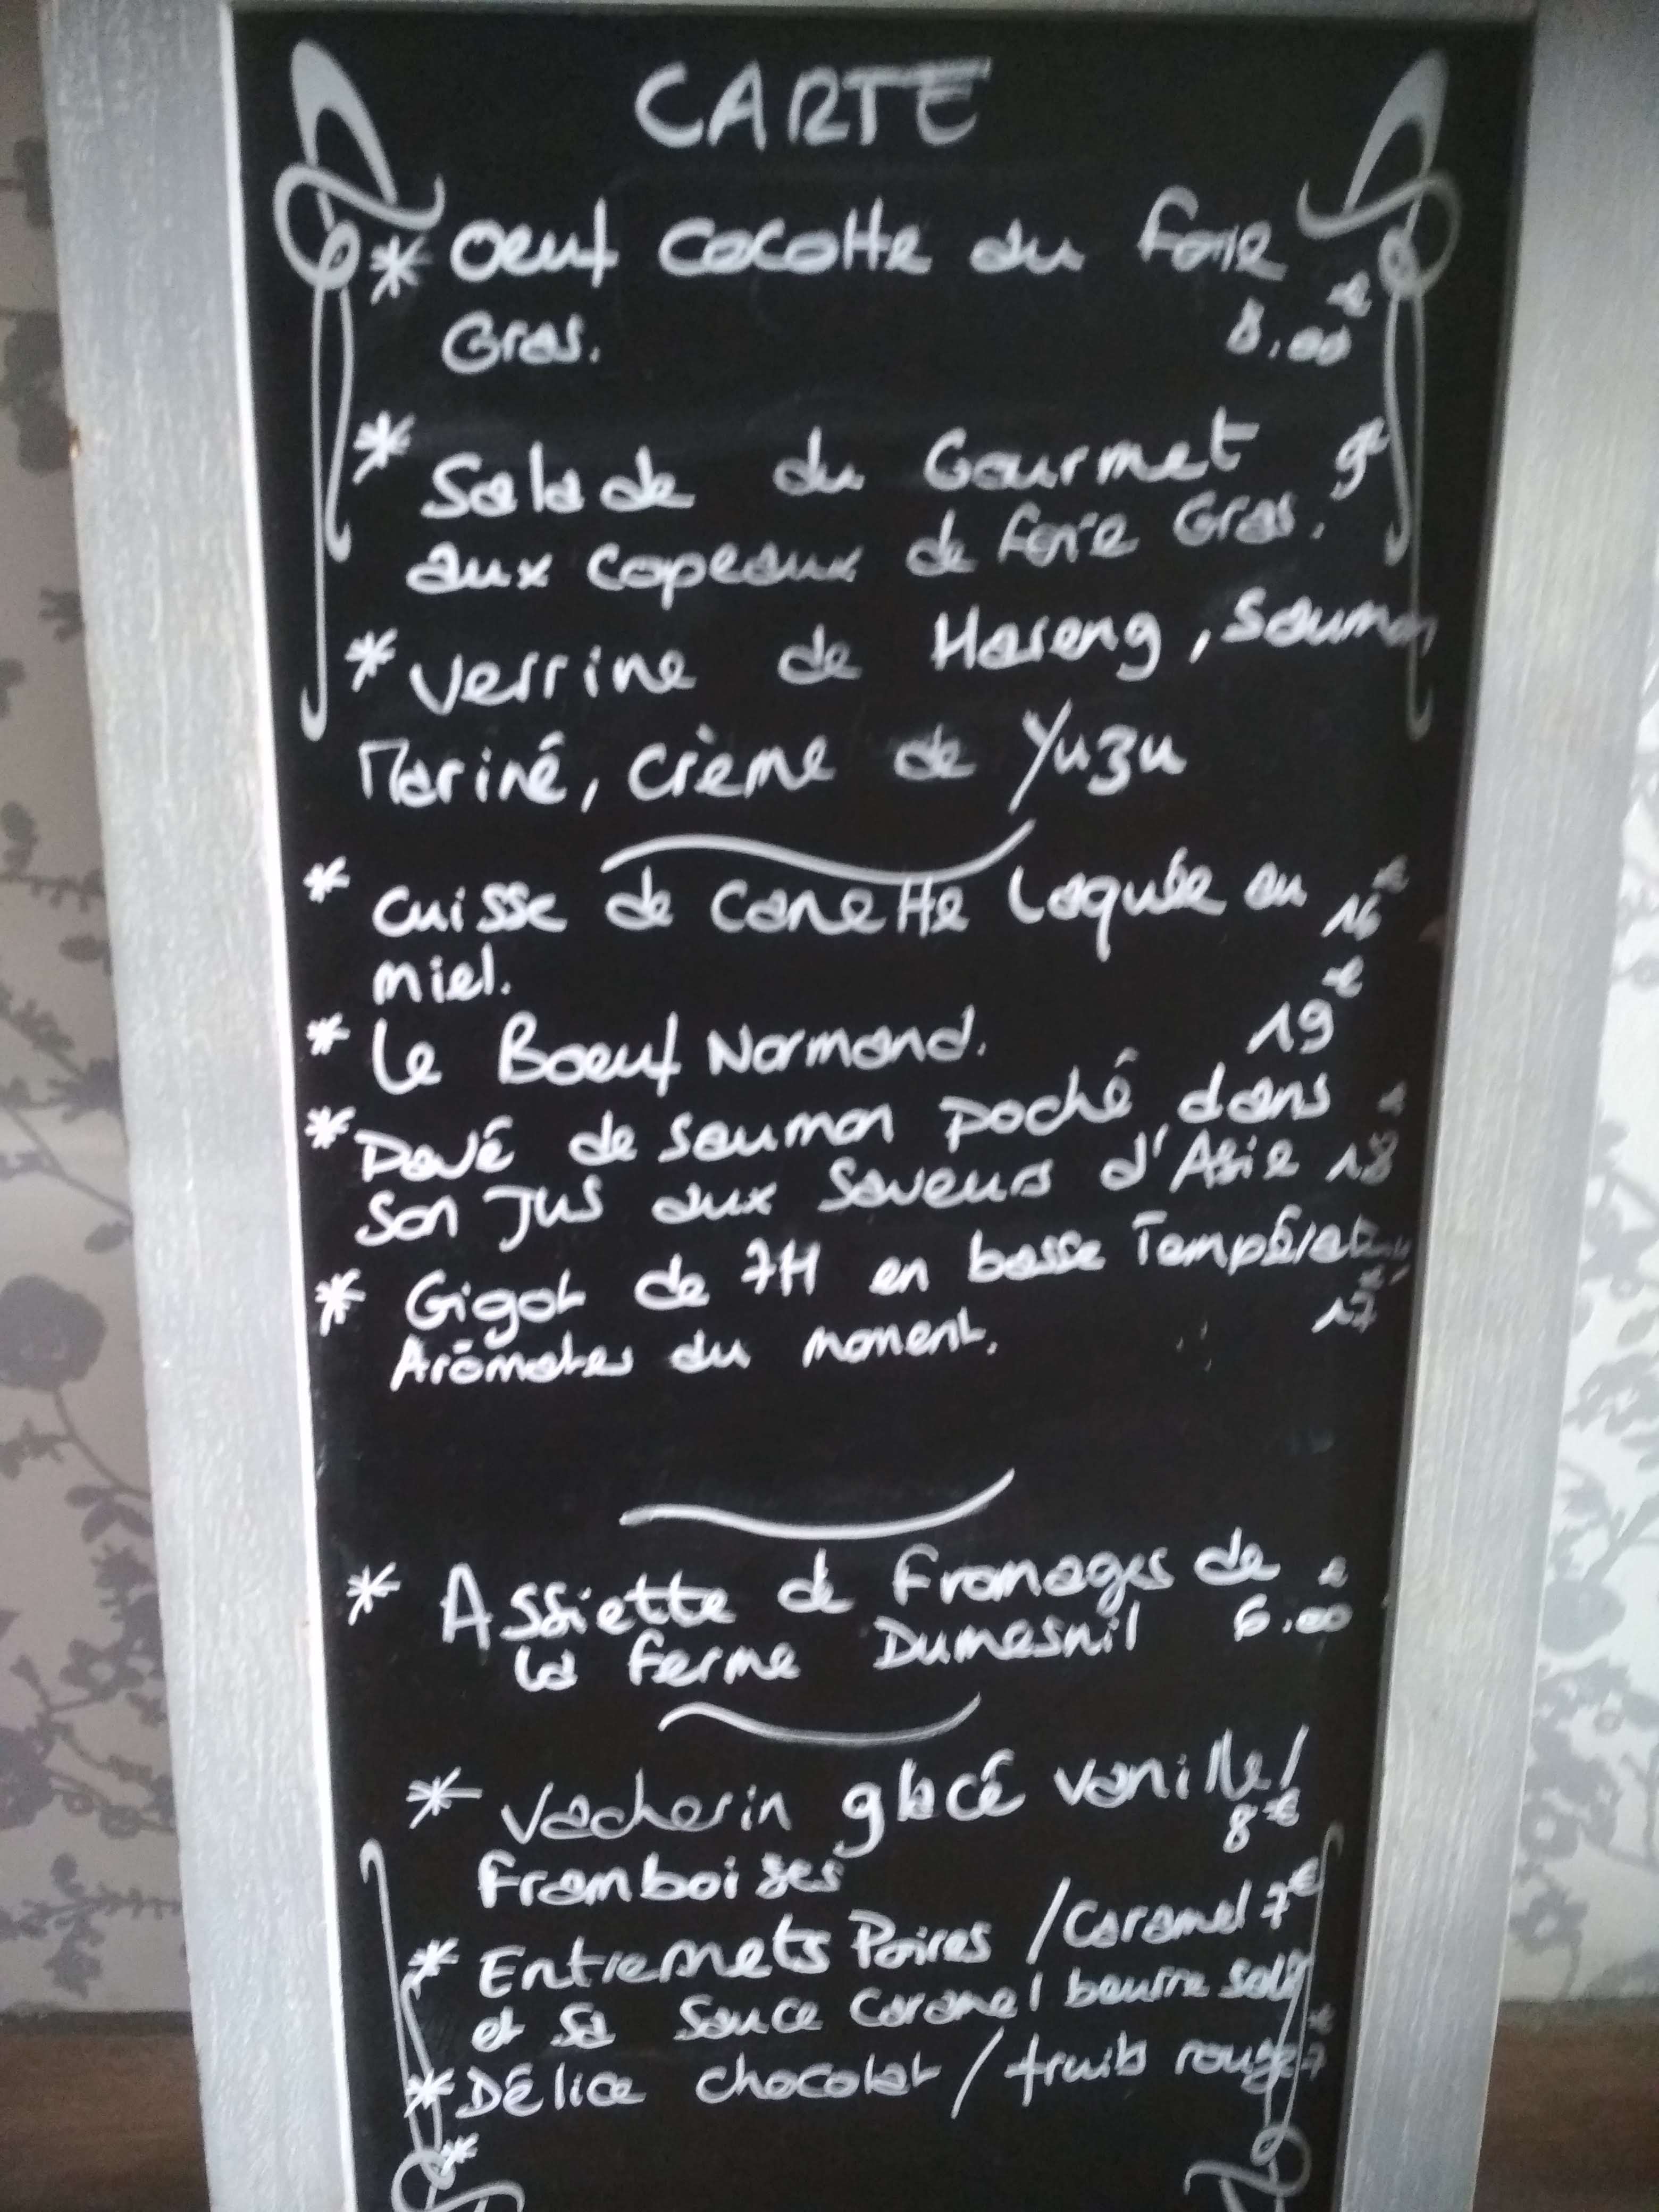 CARTE
* Oeuf Cocotte du Foie
Gras. 8,00€
* Salade du Gourmet 9€
aux copeaux de foie Gras.
* Verrine de Hareng, Saumon
Mariné, crème de Yuzu
* cuisse de canette laquée au 16€
miel.
* Le Boeuf Normand. 19€
* Pavé de saumon poché, dans
son Jus aux Saveurs d'Asie 18€
* Gigot de 7H en basse Températ
Arômates du moment. 17€
* Assiette de Fromages de
la ferme Dumesnil 6,00€
* Vacherin glacé vanille/
Framboises 8€
* Entremets Poires / Caramel 7€
et sa sauce caramel beurre salé
* Délice chocolat / fruits rouges 7€
*